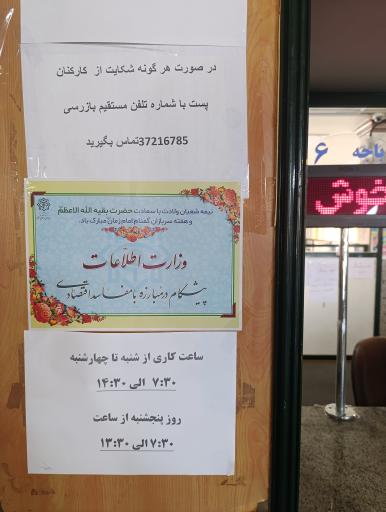 در صورت هر گونه شکایت از کارکنان
پست با شماره تلفن مستقیم بازرسی
37216785تماس بگیرید
نیمه شعبان ولادت با سعادت حضرت بقیه الله الاعظم
و هفته سربازان گمنام امام زمان مبارک باد.
وزارت اطلاعات
پیشگام در مبارزه با مفاسد اقتصادی
ساعت کاری از شنبه تا چهارشنبه
۷:۳۰ الی ۱۴:۳۰
روز پنجشنبه از ساعت
۷:۳۰ الی ۱۳:۳۰
باجه ۶
خوش